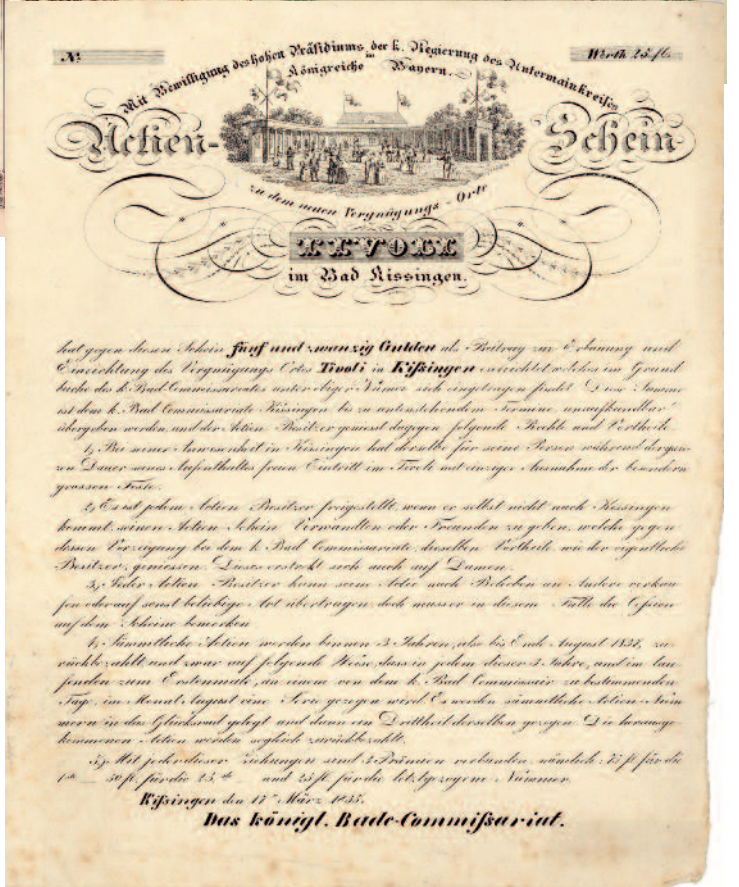 №
Werth 25 fl.
Mit Bewilligung des hohen Präsidiums der k. Regierung des Untermainkreises
im
Königreiche Bayern.
Actien-Schein
zu dem neuen Vergnügungs-Orte
TIVOLI
im Bad Kissingen.
hat gegen diesen Schein fünf und zwanzig Gulden als Beitrag zur Erbauung und
Einrichtung des Vergnügungs Ortes Tivoli in Kißingen entrichtet welches im Grund
buche des k. Bad-Commissariates unter obiger Numer sich eingetragen findet. Diese Summe
ist dem k. Bad Commissariate Kissingen bis zu untenstehendem Termine unaufkendbar
übergeben worden und der Actien Besitzer geniesst dagegen folgende Rechte und Vortheile.
1, Bei seiner Anwesenheit in Kissingen hat derselbe für seine Person während der gan-
zen Dauer seines Aufenthaltes freien Eintritt im Tivoli mit einziger Ausnahme der besondern
grossen Feste.
2, Es ist jedem Actien Besitzer freigestellt, wenn er selbst nicht nach Kissingen
kommt, seinen Actien Schein Verwandten oder Freunden zu geben, welche gegen
dessen Vorzeigung bei dem k. Bad Commissariate, dieselben Vortheile, wie der eigentliche
Besitzer, geniessen. Dieses erstrekt sich auch auf Damen.
3, Jeder Actien Besitzer kann seine Actie nach Belieben an Andere verkau
fen oder auf sonst beliebige Art übertragen, doch muss er in diesem Falle die Cession
auf dem Scheine bemerken
4, Sämmtliche Actien werden binnen 3 Jahren, also bis Ende August 1837, zu-
rückbezahlt, und zwar auf folgende Weise, dass in jedem dieser 3 Jahre, und im lau-
fenden zum Erstenmale, an einem von dem k. Bad Commissair zu bestimmenden
Tage, im Monat August eine Serie gezogen wird. Es werden sämmtliche Actien Num
mern in das Glücksrad gelegt und dann ein Drittheil derselben gezogen. Die herausge-
kommenen Actien werden sogleich zurückbezahlt.
5, Mit jeder dieser Ziehungen sind 3 Prämien verbunden, nämlich: 75 fl. für die
1te 50 fl. für die 25te und 25 fl. für die letztgezogene Nummer.
Kißingen den 17n März 1835.
Das königl. Bade-Commißariat.